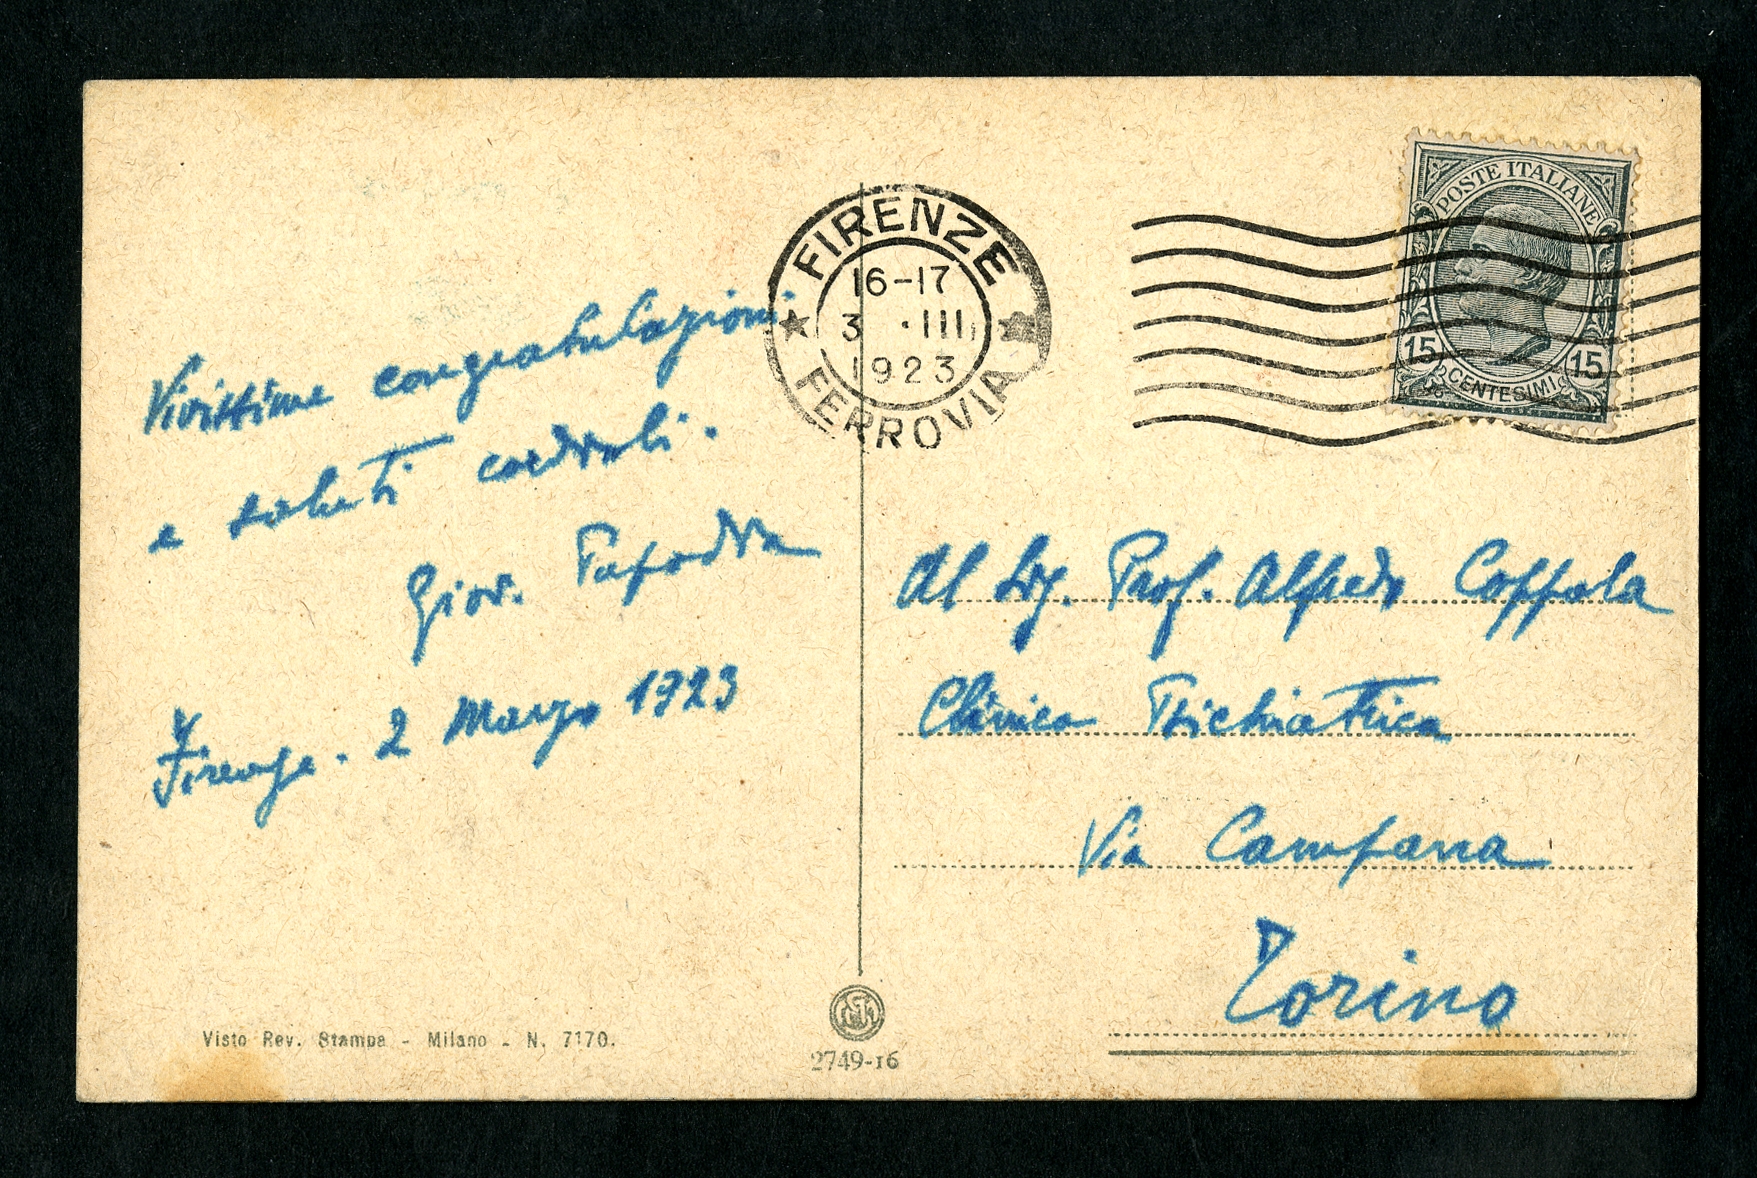 Vivissime congratulazioni
e saluti cordiali.
Giov. Papadia
Firenze. 2 Marzo 1923
Visto Rev. Stampa - Milano - N. 7170.
FIRENZE
16-17
3 .III
1923
FERROVIA
2749-16
POSTE ITALIANE
15 CENTESIMI 15
Al Sig. Prof. Alfredo Coppola
Clinica Psichiatrica
Via Campana
Torino